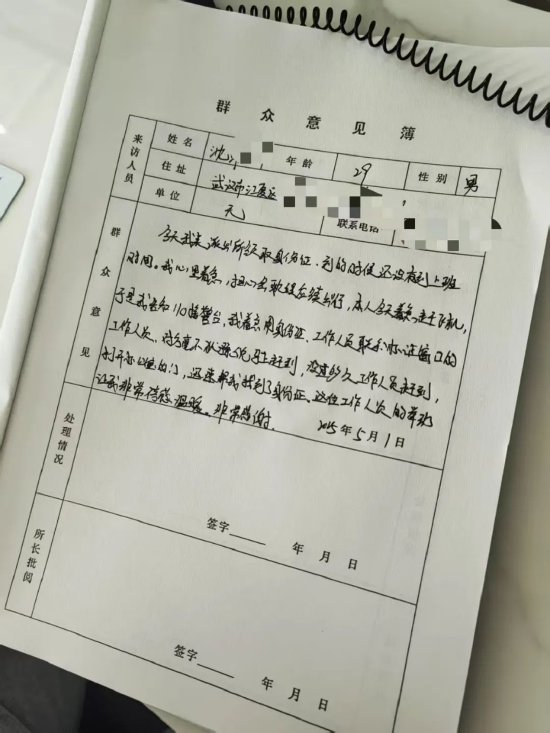 群众意见簿
来访人员 姓名 沈 年龄 29 性别 男
住址 武汉市江夏区
单位 无 联系电话
群众意见
今天我来派出所领取身份证、到的时候还没有到上班
时间。我心里着急,担心去耽误后续出行,本人今天着急赶飞机,
于是我去和110接警台,我着急用身份证、工作人员联系办证窗口的
工作人员,对方毫不犹豫马上赶到,没过多久工作人员赶到,
打开办证的门,迅速帮我找到了身份证、这位工作人员的帮助
让我非常感动温暖。非常感谢.
2025年5月1日
处理情况
签字 年 月 日
所长批阅
签字 年 月 日